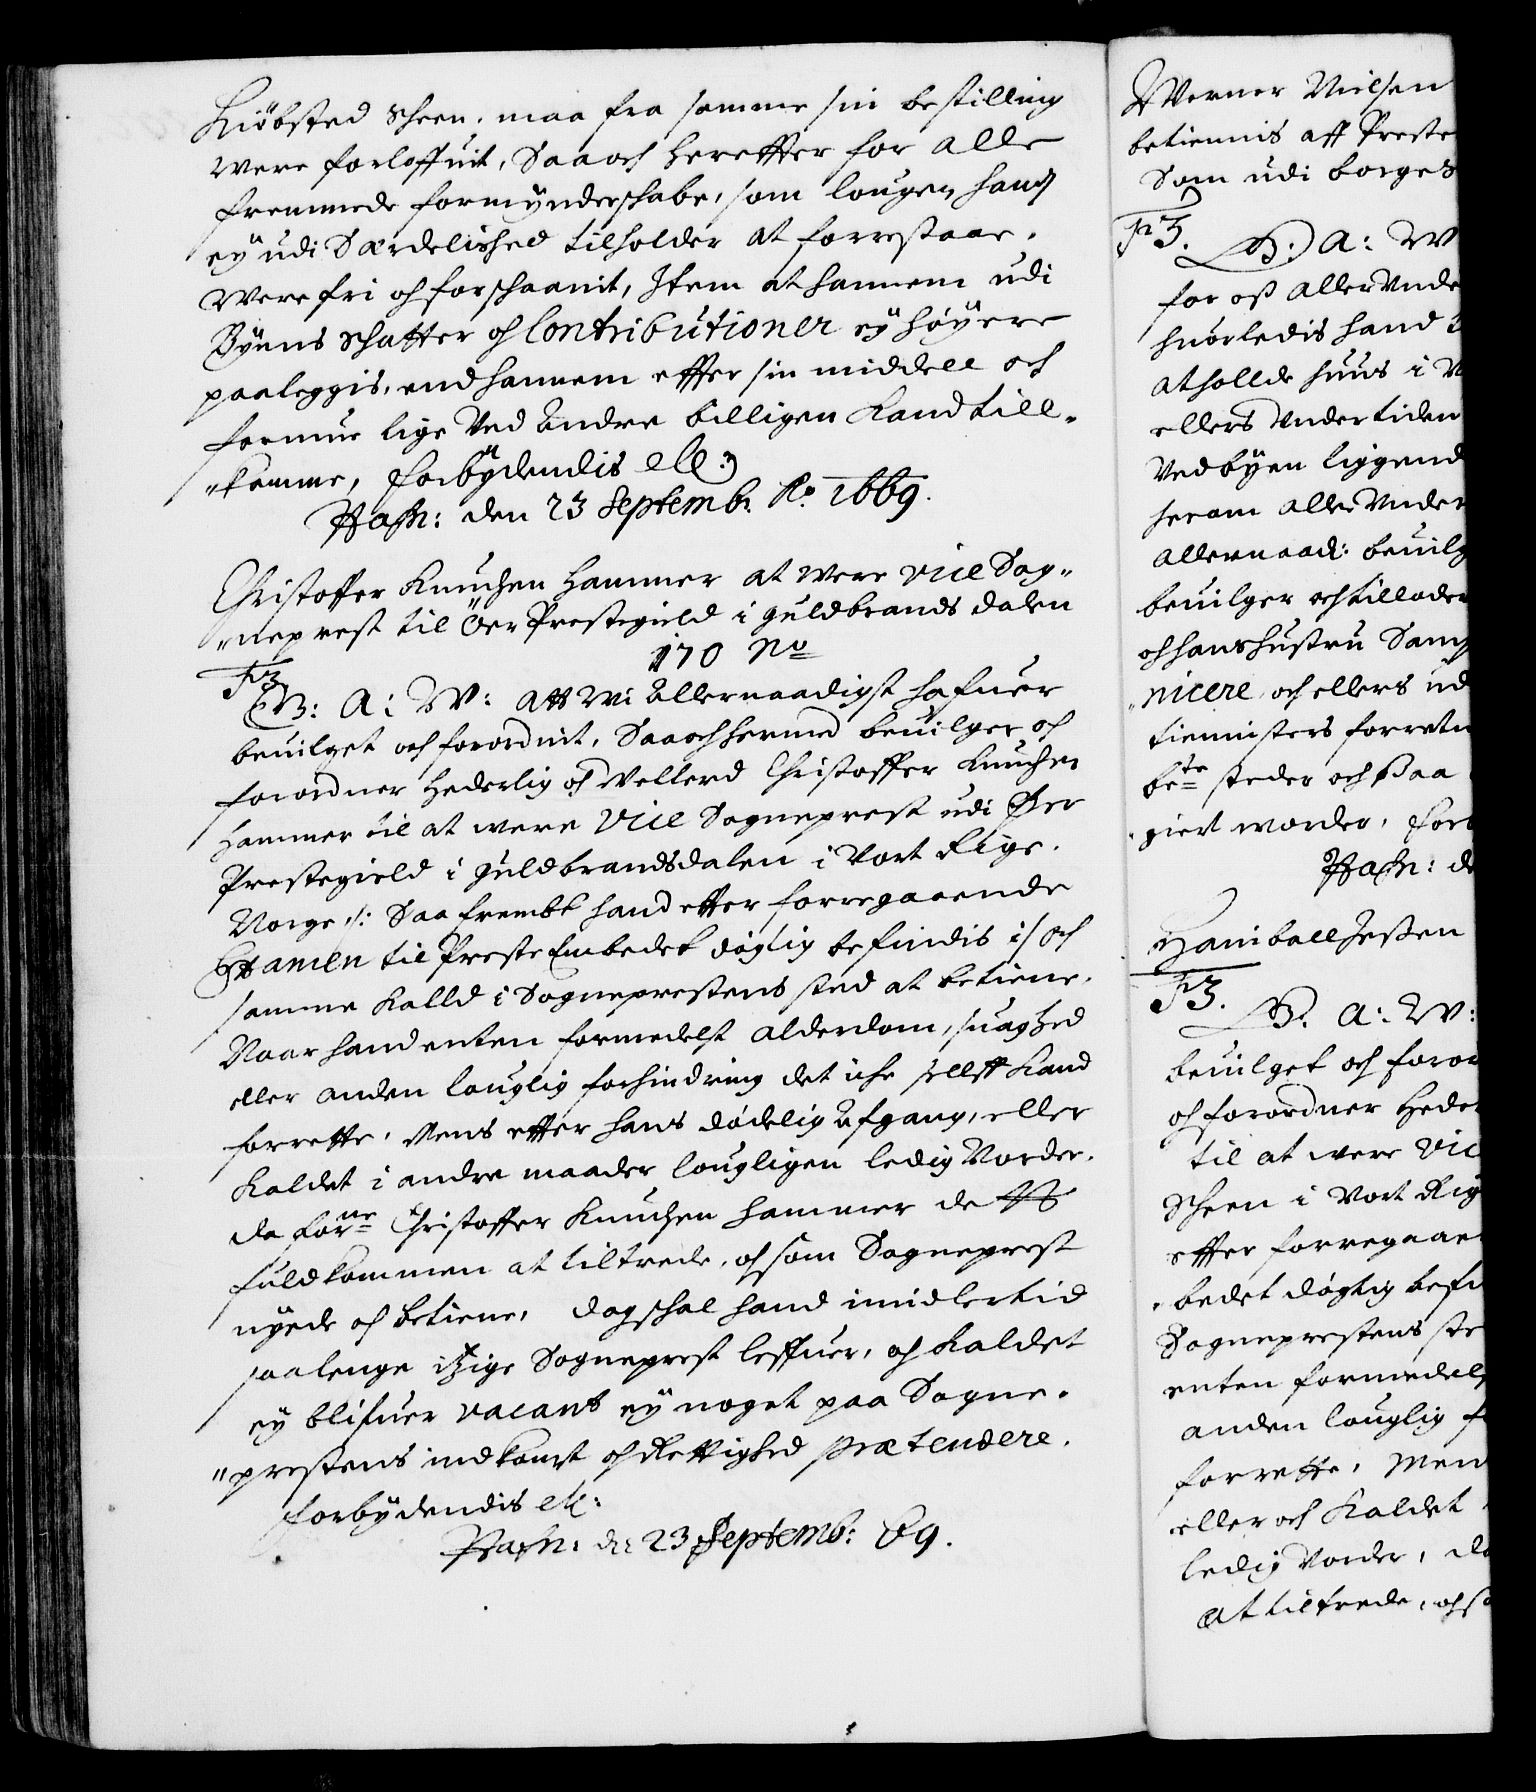 Kiöbsted Scheen, maa fra samme sin bestilling
Were forlofvuit, Saaoch herefter for alle
fremmede formÿnderschaber, som lougen hans
eÿ udi Særdelished tilholder at forrestaae,
Were fri och forschaanit, Item at hannem udi
Bÿens Schatter och Contributioner eÿ høÿere
paaleggis, end hannem efter sin middell och
formue lige Ved Andre billigen Kand till„
„komme, forbÿdendis etc:
Hafn: den 23 Septemb: Ao. 1669.
Christoffer Knudsen Hammer at Were vice Sog„
„neprest til Öer Prestegield i Guldbrands dalen
170 No
F3
G. B: A: W: Att Wi Allernaadigst hafuer
beuilget och forordnit, Saaoch hermed beuilger och
forordner Hederlig och Vellerd Christoffer Knudsen
Hammer til at were Vice Sogneprest udi Öer
Prestegield i Guldbrandsdalen i Vort Rige
Norge /: Saa frembt hand efter forregaaende
Examen til Preste Embedet døgtig befindis :/ och
samme Kalld i Sogneprestens sted at betiene,
Naar hand enten formedelst Alderdom, suaghed
eller anden louglig forhindring det iche sellff Kand
forrette, Mens efter hans dødelig Afgang, eller
Kaldet i andre maader lougligen ledig Vorder,
da forne Christoffer Knudsen Hammer dett
fuldkommen at tiltrede, och som Sogneprest
nÿde och betiene, dog schal hand imidlertid
saalenge itzige Sogneprest leffuer, och Kaldet
eÿ blifuer vacant eÿ noget paa Sogne„
„prestens indkomst och Rettighed prætendere.
forbÿdendis etc:
Hafn: den 23 Septemb: 69.
Werner Nielsen
betiennis aff Preste
Som udi borges
F3. G. B. A: W
for oß Aller Vnde
huorledis hand
at hollde huus i
ellers Vndertiden
Ved bÿen liggend
herom Aller Vnder
Allernaad: beuilg
beuilger och tillader
och hans hustru Samp
„nicere, och ellers ud
tiennisters forretn
bete steder och saa
„giet worder, forb
Hafn: de
Haniball Jeßen
F3.
G. B. A: W:
beuilget och foror
och forordner Heder
til at were Vic
Scheen i Vort Rig
efter forregaae
„bedet døgtig befin
Sogneprestens ste
enten formedels
anden louglig f
forrette, Men
eller och Kaldet
ledig Vorder, da
at tiltrede, och so